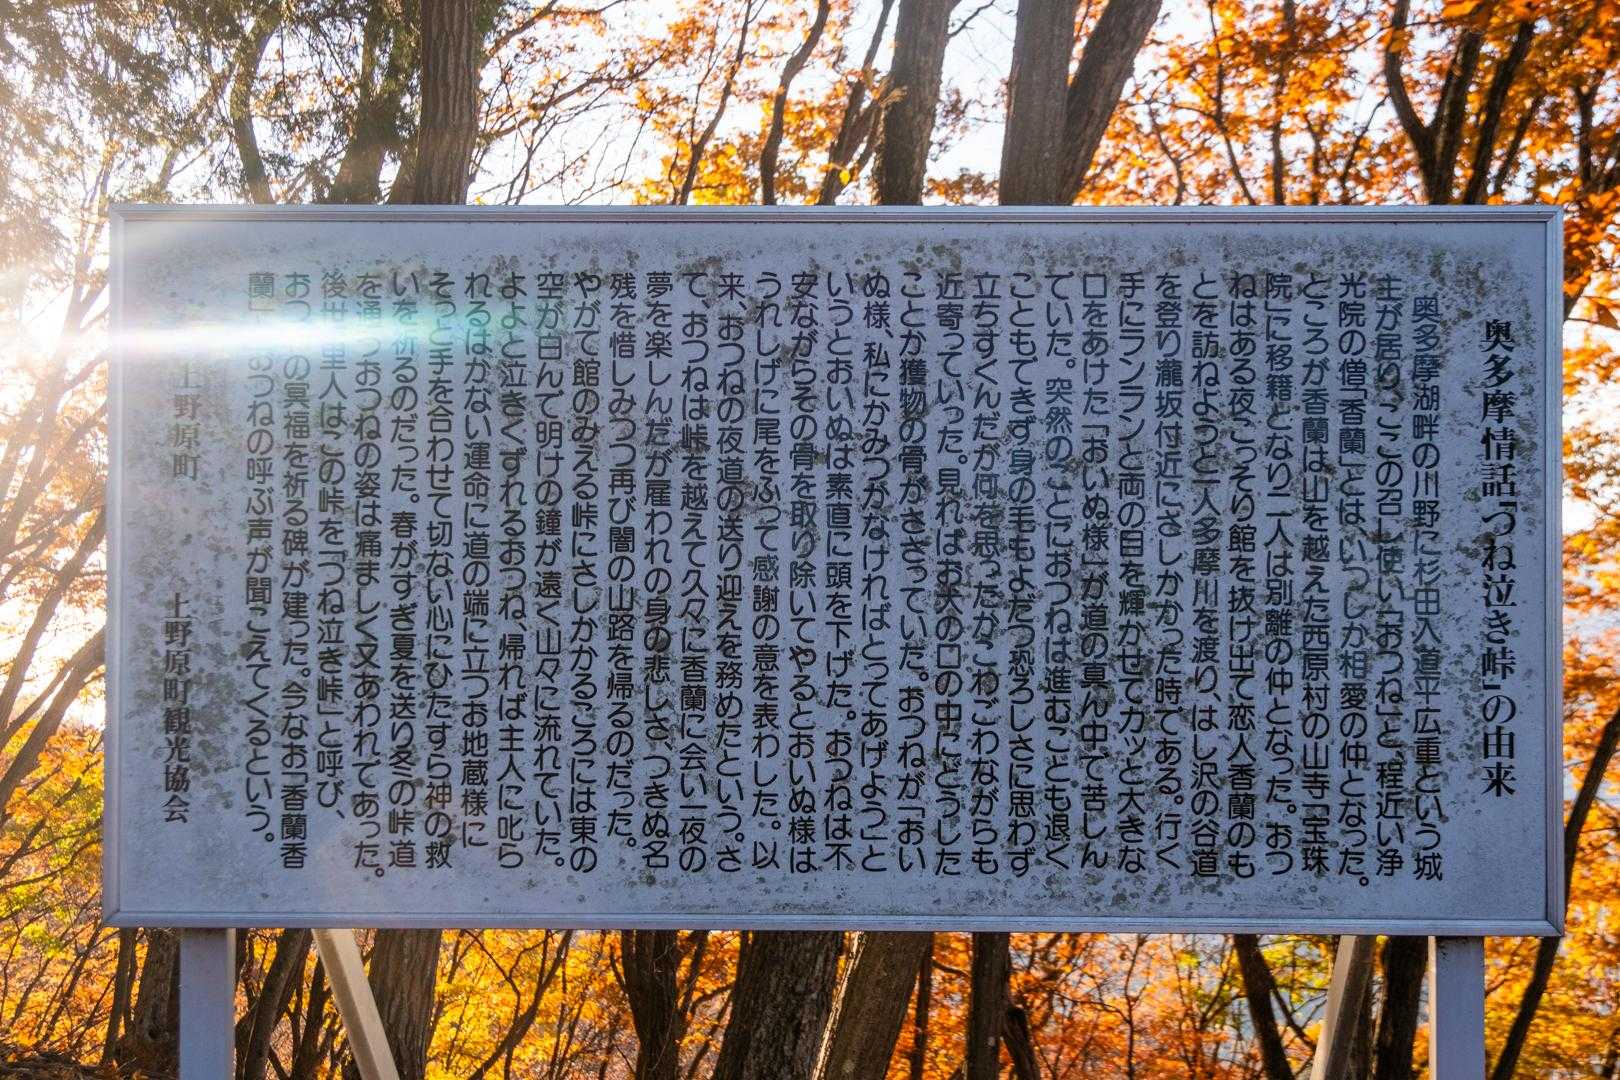 奥多摩情話「つね泣き峠」の由来
奥多摩湖畔の川野に杉田入道平広重という城
主が居り、ここの召し使い「おつね」と、程近い浄
光院の僧「香蘭」とは、いつしか相愛の仲となった。
ところが香蘭は山を越えた西原村の山寺「宝珠
院」に移籍となり二人は別離の仲となった。おつ
ねはある夜こっそり館を抜け出て恋人香蘭のも
とを訪ねようと一人多摩川を渡り、はし沢の谷道
を登り瀧坂付近にさしかかった時である。行く
手にランランと両の目を輝かせてカッと大きな
口をあけた「おいぬ様」が道の真ん中で苦しん
でいた。突然のことにおつねは進むことも退く
こともできず身の毛もよだつ恐ろしさに思わず
立ちすくんだが何を思ったかこわごわながらも
近寄っていった。見ればお犬の口の中にどうした
ことか獲物の骨がささっていた。おつねが「おい
ぬ様、私にかみつかなければとってあげよう」と
いうとおいぬは素直に頭を下げた。おつねは不
安ながらその骨を取り除いてやるとおいぬ様は
うれしげに尾をふって感謝の意を表わした。以
来、おつねの夜道の送り迎えを務めたという。さ
て、おつねは峠を越えて久々に香蘭に会い一夜の
夢を楽しんだが雇われの身の悲しさ、つきぬ名
残を惜しみつつ再び闇の山路を帰るのだった。
やがて館のみえる峠にさしかかるころには東の
空が白んで明けの鐘が遠く山々に流れていた。
よよと泣きくずれるおつね、帰れば主人に叱ら
れるはかない運命に道の端に立つお地蔵様に
そっと手を合わせて切ない心にひたすら神の救
いを祈るのだった。春がすぎ夏を送り冬の峠道
を通うおつねの姿は痛ましく又あわれであった。
後世里人はこの峠を「つね泣き峠」と呼び、
おつねの冥福を祈る碑が建った。今なお「香蘭香
蘭」とおつねの呼ぶ声が聞こえてくるという。
上野原町
上野原町観光協会